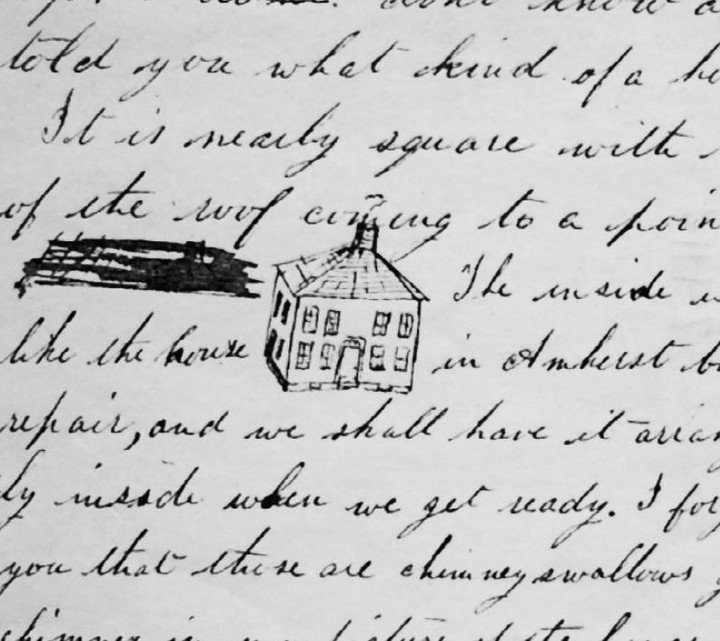 don't know a
told you what kind of a ho
It is nearly square with
of the roof coming to a poin
The inside
like the house in Amherst b
repair, and we shall have it arran
ly inside when we get ready. I for
you that those are chimney swallows
chimney in picture of the